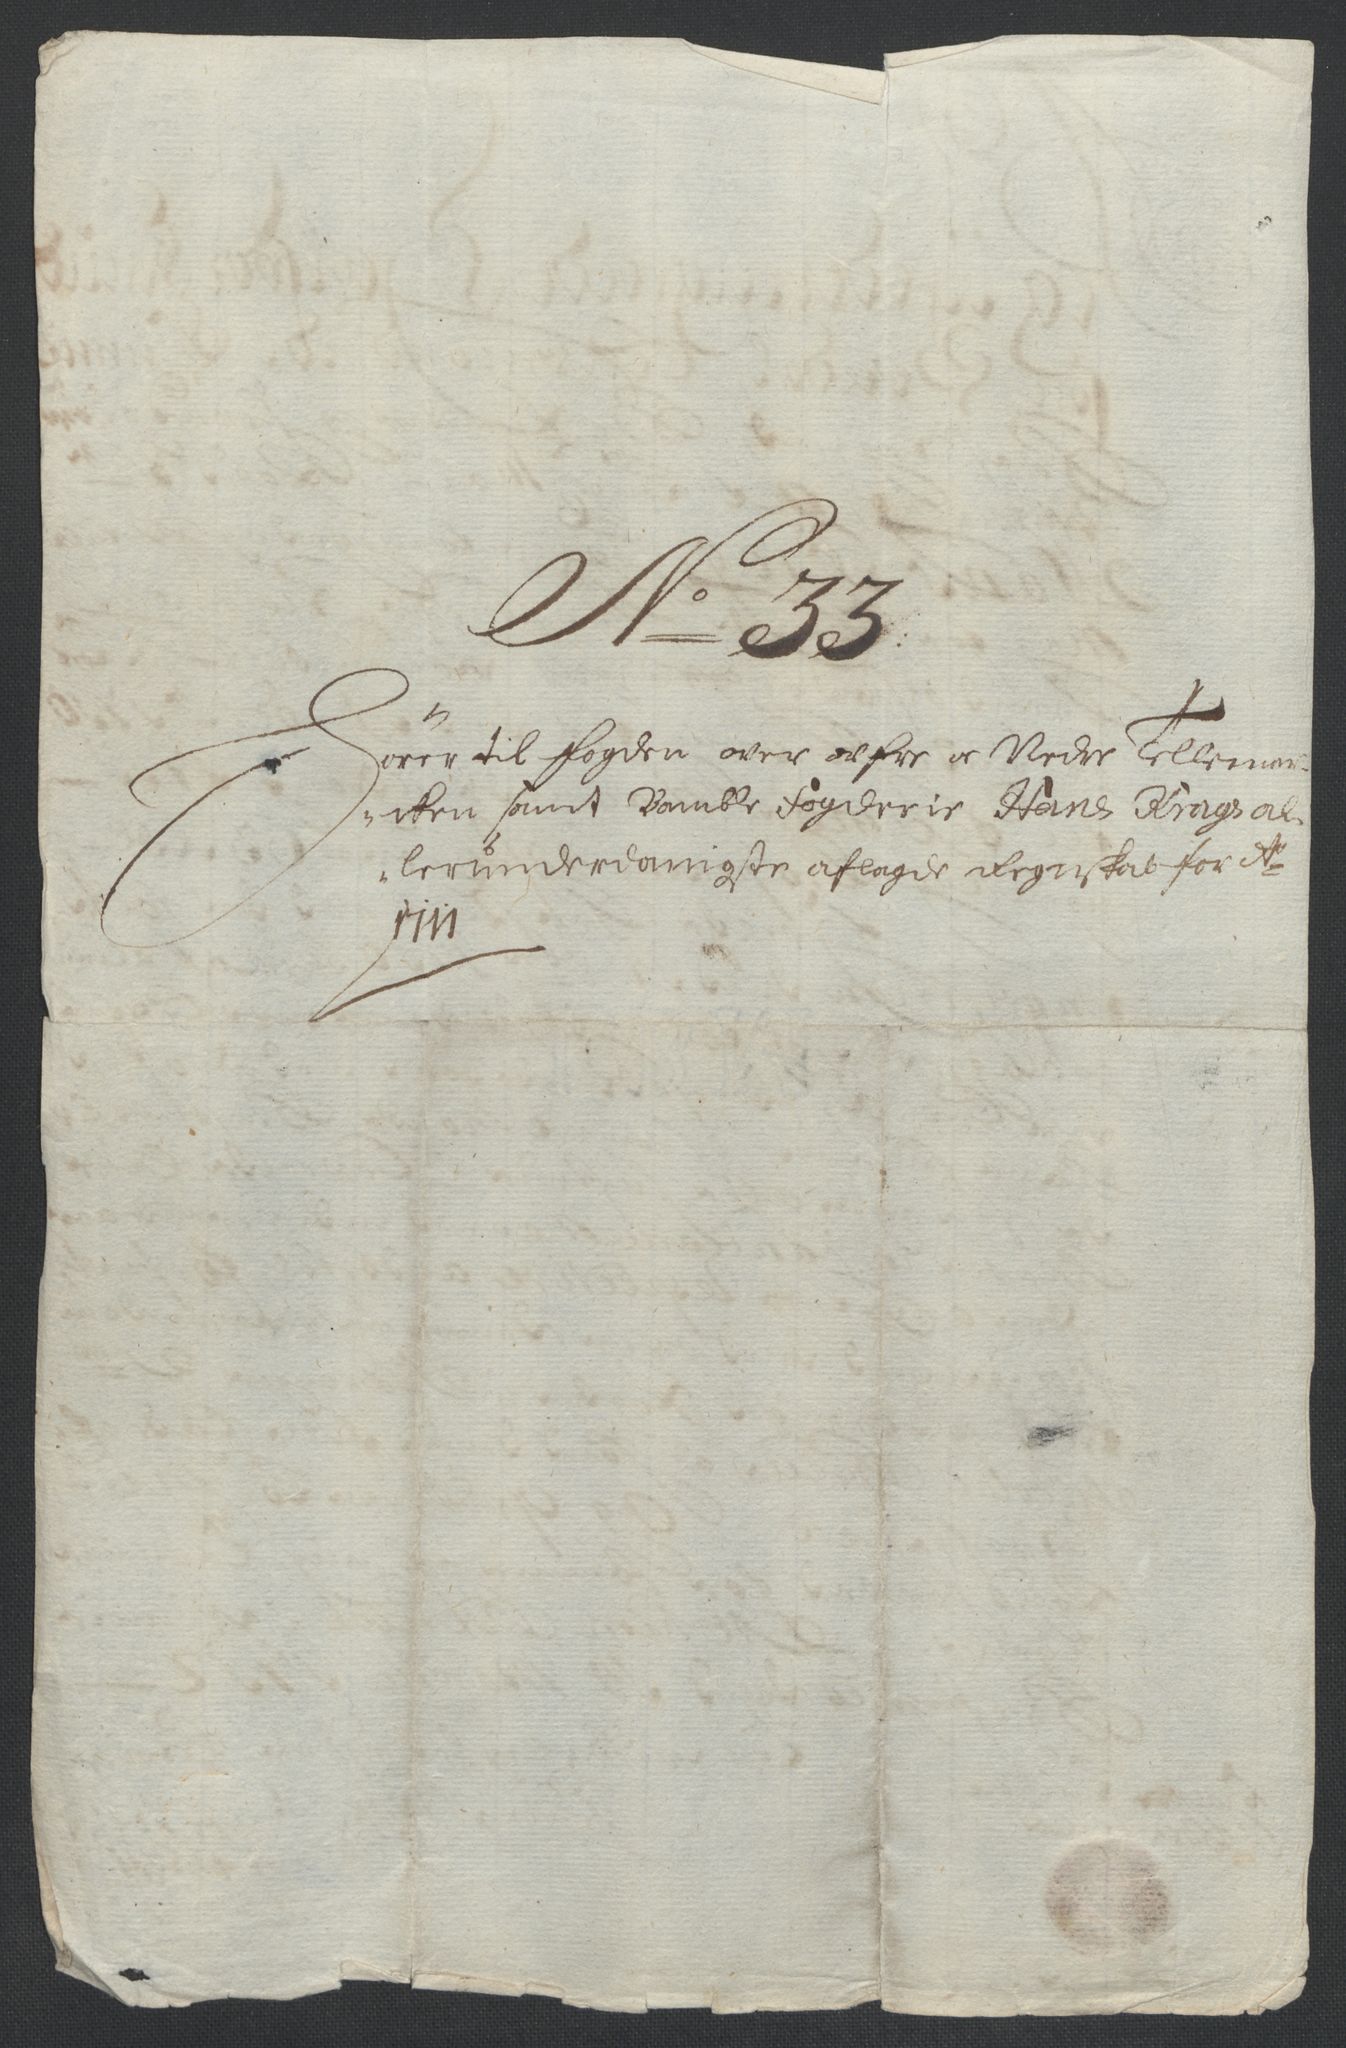 No 33
Hörer til fogden over øfre oc Nedre Tellemar-
-cken samt Bamble fogderie Hans Krags al-
-lerunderdanigste aflagde Regnskab for Ao
1711